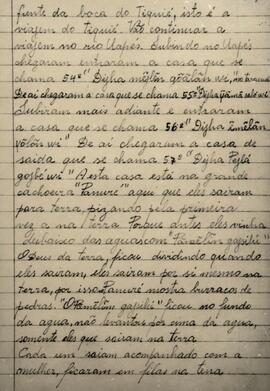 fente da boca do Tiquié, isto é a
viajem do tiquié. Vai continuar a
viajem no rio Uapés. Subindo no Uapés
chegaram entraram a casa que se
chama 54º "Diʝha
De aí chegaram a casa que se chama 55º "Diʝha
Subiram mais adiante e entraram
a casa que se chama 56º "Diʝha
wi". De aí chegaram a casa de
saída que se chama 57º "Diʝha
wi" A esta casa está na grande
cachoeira "Panuré" aqui que eles saíram
para terra, pizando pela primeira
vez a na terra Porque antes eles vinha
debaixo das aguas com
O Deus da terra, ficou dividindo quando
eles saíram, eles saíram por si mesmo na
terra, por isso Panuré mostra burracos de
pedras. ficou no fundo
da agua, não levantou por cima da agua,
somente eles que saíram na terra
Cada um saíam acompanhado com a
mulher, ficaram em filas na terra